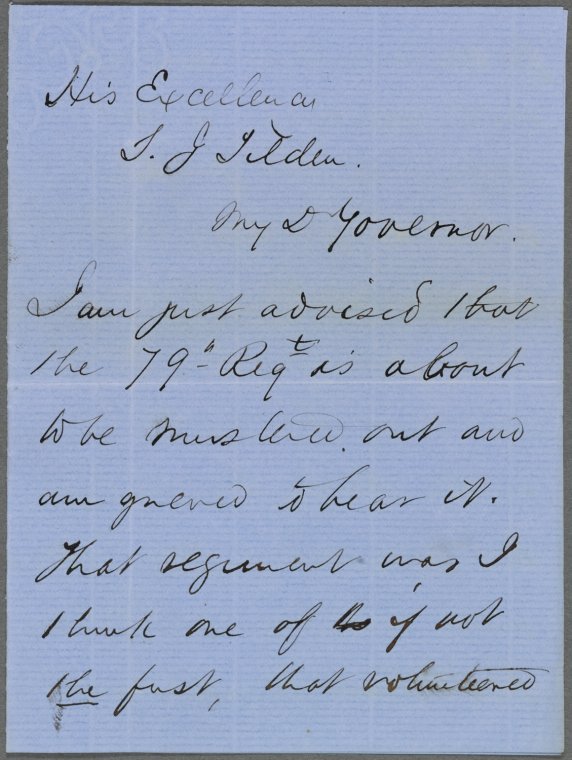 His Excellency
S. J Tilden.
My D Governor.
I am just advised that
the 79" Regt is about
to be mustered out and
am grieved to hear it.
That regiment was I
think one of if not
the first, that volunteered